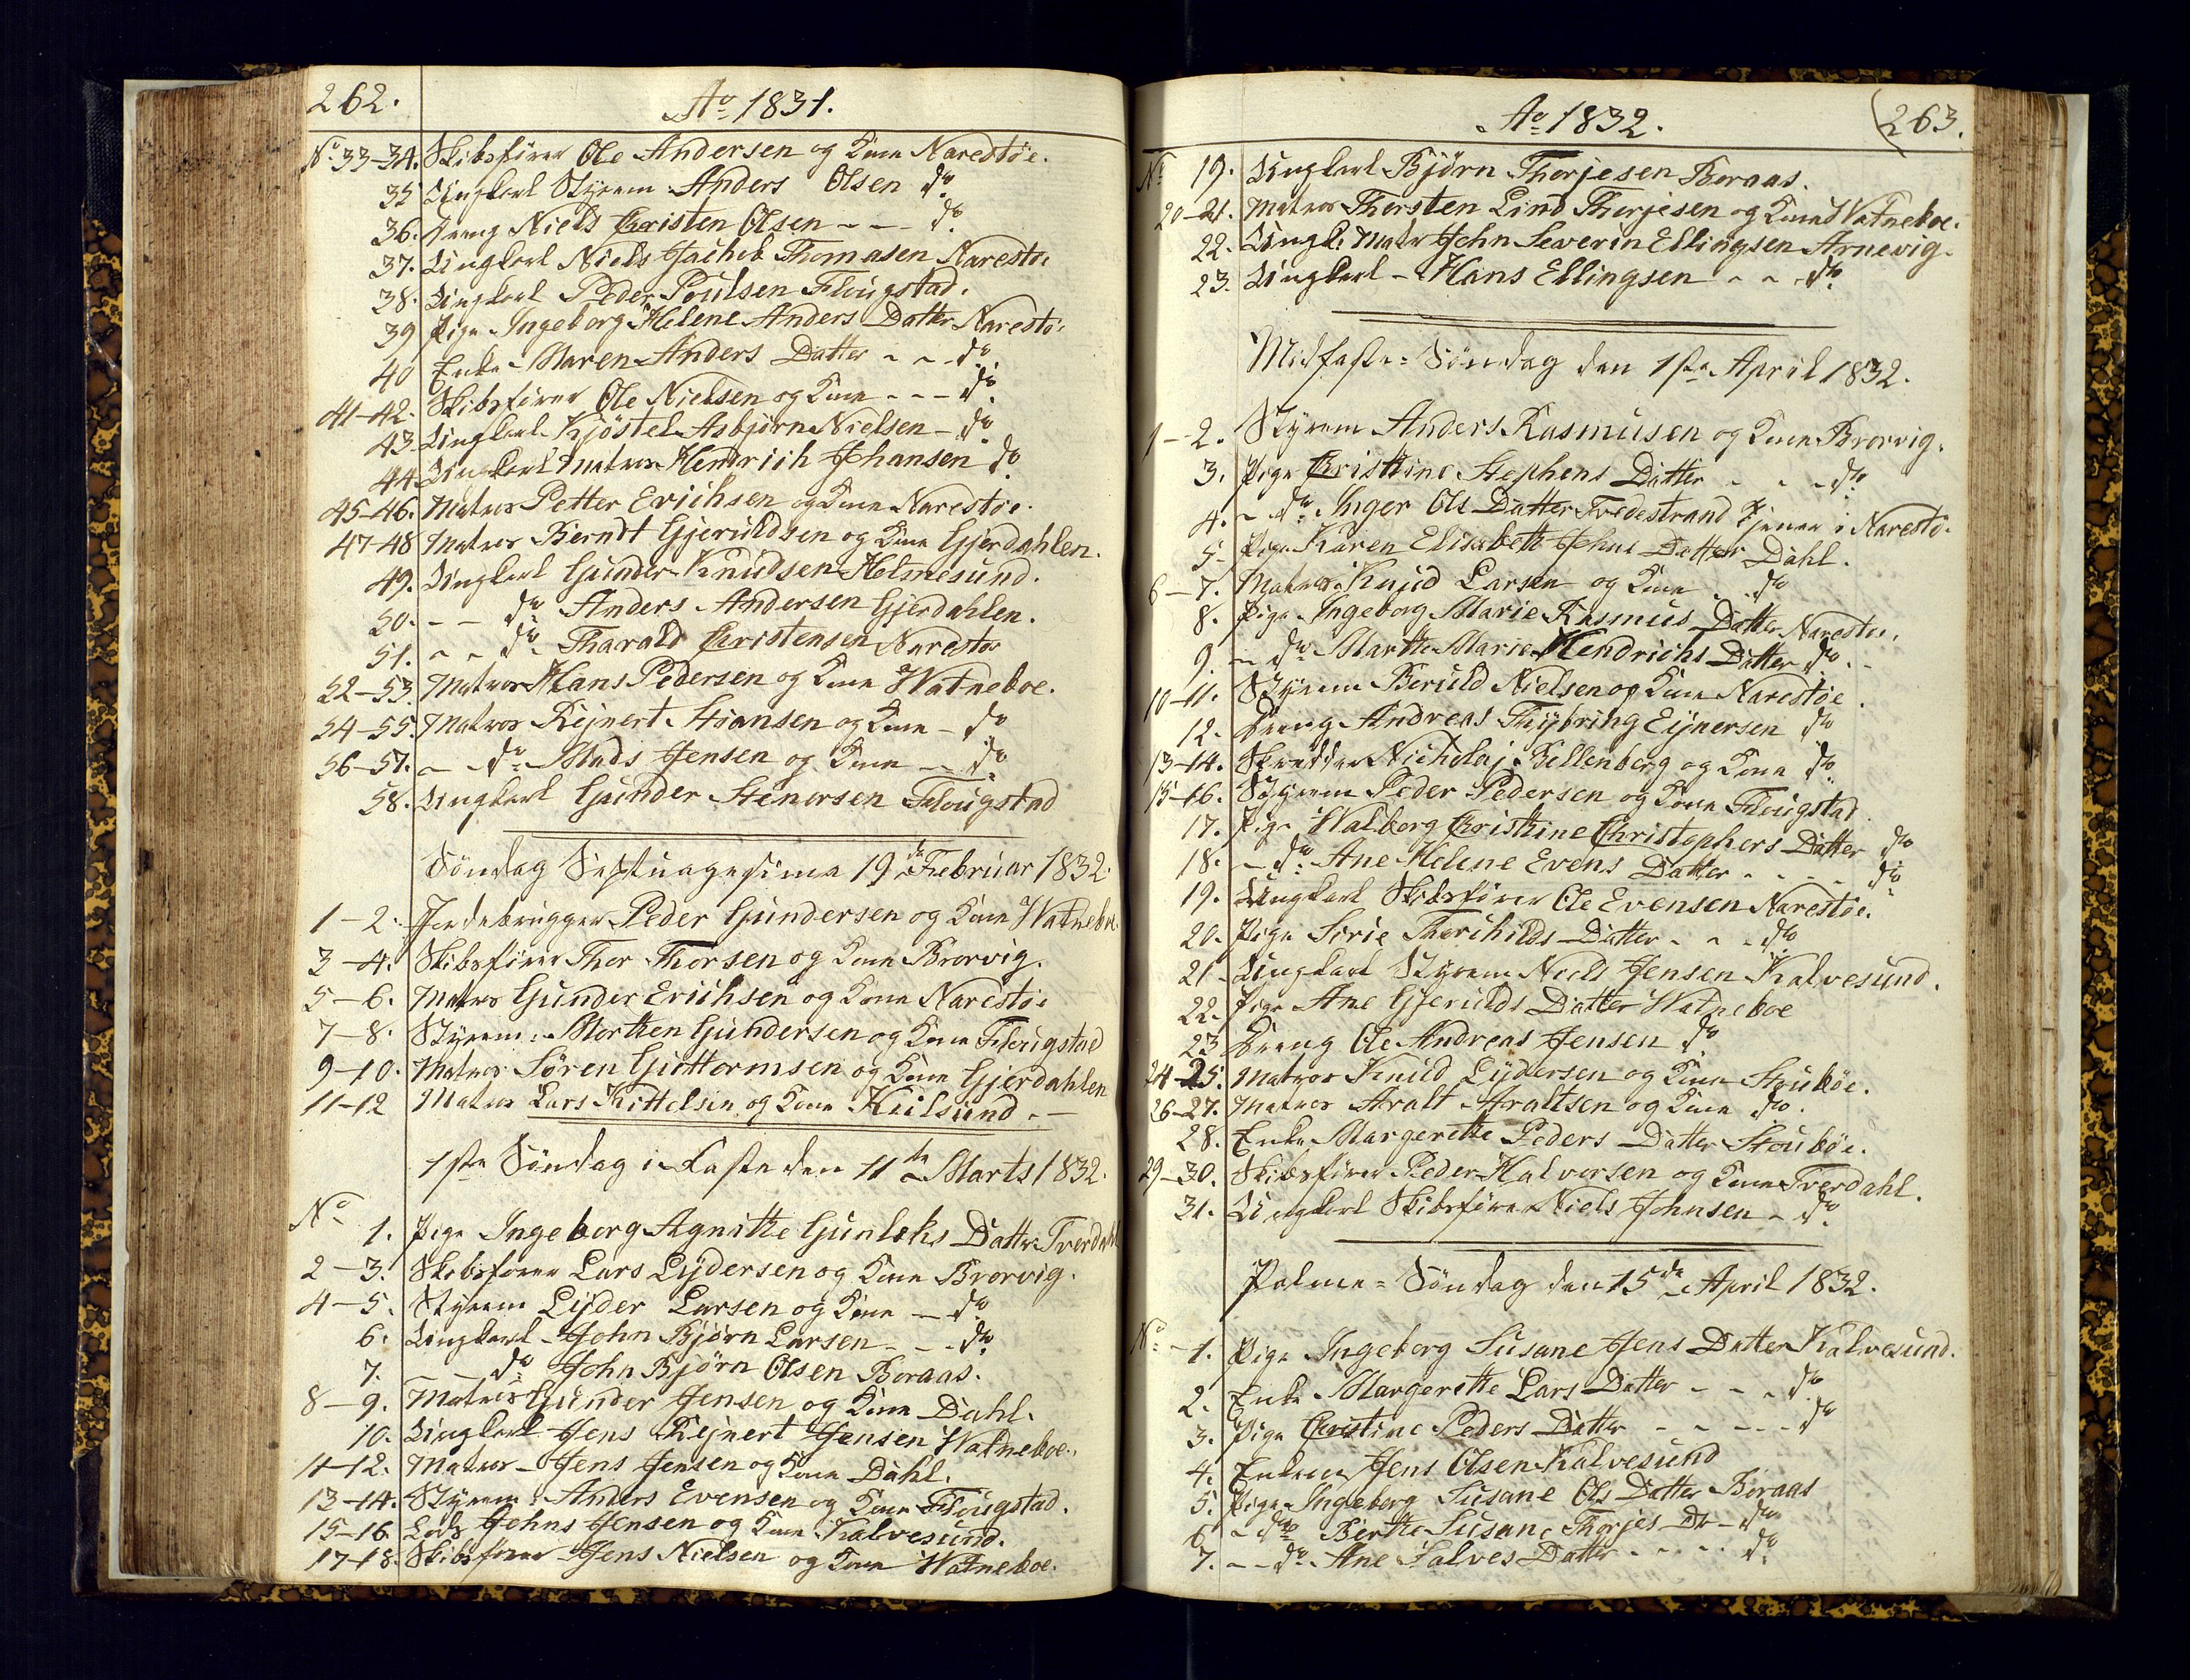 262.
Ao 1831.
No 33-34. Skibsfører Ole Andersen og Kone Narestøe.
35 Ungkarl Styrm. Anders Olsen do
36. Dreng Niels Christen Olsen - - - do
37. Ungkarl Niels Jachob Thomasen Narestøe
38. Ungkarl Peder Poulsen Flougstad.
39 Pige Ingeborg Helene Anders Datter Narestøe
40 Enke Maren Anders Datter - - do
41-42. Skibsfører Ole Nielsen og Kone - - - do
43. Ungkarl Kjöstel Asbjørn Nielsen - do
44. Ungkarl Matros Hendrich Johansen do
45-46. Matros Petter Erichsen og Kone Narestøe.
47-48 Matros Berndt Gjeruldsen og Kone Gjerdahlen.
49. Ungkarl Gunder Knudsen Holmesund.
50. - - do Anders Andersen Gjerdahlen.
51. - - do Tharald Christensen Narestøe
52-53. Matros Hans Pedersen og Kone Watneboe.
54-55. Matros Rejnert Stiansen og Kone - do
56-57. - - do Mads Jensen og Kone - do
58. Ungkarl Gunder Stenersen Flougstad
Söndag Septuagesima 19de Februar 1832.
1-2. Jordebrugger Peder Gundersen og Kone Watneboe
3-4. Skibsfører Thor Thorsen og Kone Brorvig.
5-6. Matros Gunder Erichsen og Kone Narestøe
7-8. Styrm: Morthen Gundersen og Kone Flougstad
9-10. Matros Søren Guttormsen og Kone Gjerdahlen
11-12 Matros Lars Kittelsen og Kone Kiilsund. -
1ste Söndag i Faste den 11te Marts 1832.
No
1. Pige Ingeborg Agnitte Gunleks Datter Tverdahl
2-3. Skibsfører Lars Lydersen og Kone Brorvig.
4-5. Styrm Lyder Larsen og Kone - do
6. Ungkarl John Bjørn Larsen - - do
7. - do John Bjørn Olsen Boraas.
8-9. Matros Gunder Jensen og Kone Dahl.
10. Ungkarl Jens Rejnert Jensen Watneboe.
11-12. Matros - Jens Jensen og Kone Dahl.
13-14. Styrm: Anders Evensen og Kone Flougstad.
15-16 Lods Johns Jensen og Kone Kalvesund.
17-18. Skibsfører Jens Nielsen og Kone Watneboe.
Ao 1832.
263.
No 19. Ungkarl Bjørn Thorjesen Boraas.
20-21. Matros Thorsten Lind Thorjesen og Kone Watneboe.
22. Ungk: Matr John Severin Ellingsen Arnevig.
23. Ungkarl - Hans Ellingsen - - do
Midfaste-Söndag den 1ste April 1832.
1-2. Styrm Anders Rasmusen og Kone Brorvig.
3. Pige Christine Stephens Datter - - - do
4. - do Inger Ols Datter Tvedestrand Tjener i Narestøe.
5. Pige Karen Elisabeth Johns Datter Dahl.
6-7. Matros Knud Larsen og Kone - do
8. Pige Ingeborg Marie Rasmus Datter Narestøe.
9. - do Marthe Marie Hendrichs Datter do -
10-11. Styrm Beruld Nielsen og Kone Narestøe.
12. Dreng Andreas Thybring Ejnersen do
13-14. Skredder Nicholaj Kellenberg og Kone do
15-16. Styrm Peder Pedersen og Kone Flougstad.
17. Pige Walborg Christine Christophers Datter do
18. - do Ane Helene Evens Datter - - - - do
19. Ungkarl Skibsfører Ole Evensen Narestøe.
20. Pige Sirie Thorchilds Datter - - - do
21 - Ungkarl Styrm Niels Jensen Kalvesund.
22. Pige Ane Gjerulds Datter Watneboe
23 Dreng Ole Andreas Jensen do
24-25. Matros Knud Lydersen og Kone Stoubøe.
26-27. Matros Aralt Araltsen og Kone do.
28. Enke Margerethe Peders Datter Stoubøe.
29-30. Skibsfører Peder Halversen og Kone Tverdahl.
31. Ungkarl Skibsfører Niels Johnsen - do
Palme-Söndag den 15de April 1832.
No - 1. Pige Ingeborg Susane Jens Datter Kalvesund.
2. Enke Margerethe Lars Datter - - - do
3. Pige Christine Peders Datter - - - - do
4. Enkem Jens Olsen Kalvesund
5. Pige Ingeborg Susane Ols Datter Boraas
6 - do Birthe Susane Thorjes Dr - do
7. - - do Ane Salves Datter - - - - do